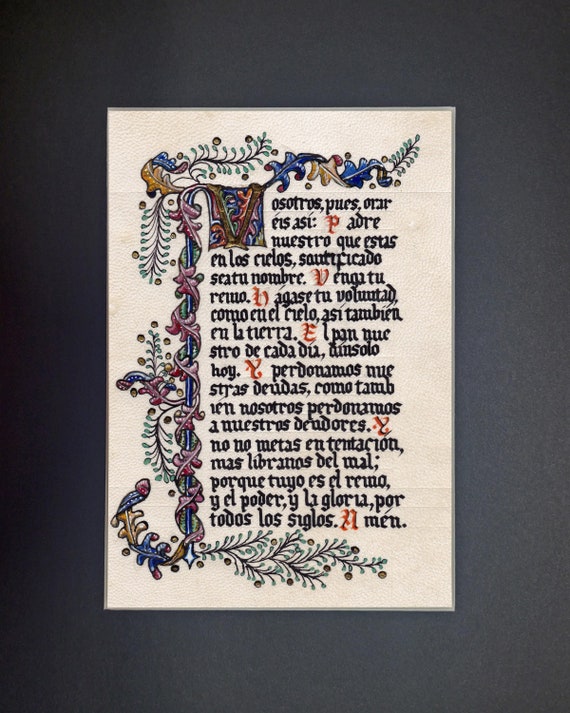 Vosotros, pues, orar
éis así: Padre
nuestro que estas
en los cielos, santificado
sea tu nombre. Venga tu
reino. Hágase tu voluntad,
como en el cielo, así también
en la tierra. El pan nue
stro de cada día, dánsolo
hoy. Y perdonamos nue
stras deudas, como tamb
ién nosotros perdonamos
a nuestros deudores. Y
no no metas en tentación,
mas libranos del mal;
porque tuyo es el reino,
y el poder, y la gloria, por
todos los siglos. Amén.